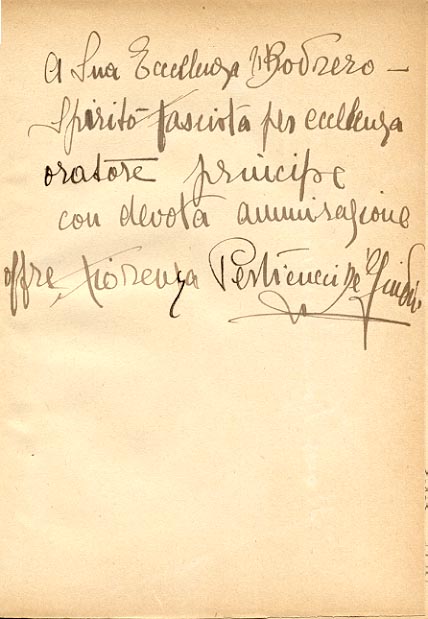 A Sua Eccellenza Bodrero –
Spirito fascista per eccellenza
oratore principe
con devota ammirazione
offre Fiorenza Perticucci De' Giudici